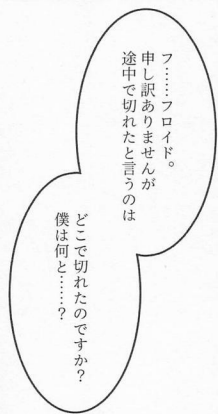 フ……フロイド。
申し訳ありませんが
途中で切れたと言うのは
どこで切れたのですか？
僕は何と……？